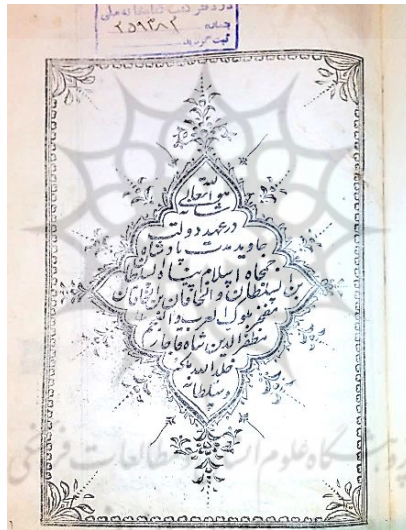 در دفتر کتب کتابخانه ملی
بشماره ۲۵۹۳۸۲
ثبت گردید
هو الله تعالی
در عهد دولت
جاوید مدت پادشاه
جمجاه اسلام پناه السلطان
بن السلطان والخاقان بن الخاقان
مفخر ملوک العرب والعجم
مظفرالدین شاه قاجار
خلد الله ملکه
و سلطانه
پژوهشگاه علوم انسانی و مطالعات فرهنگی